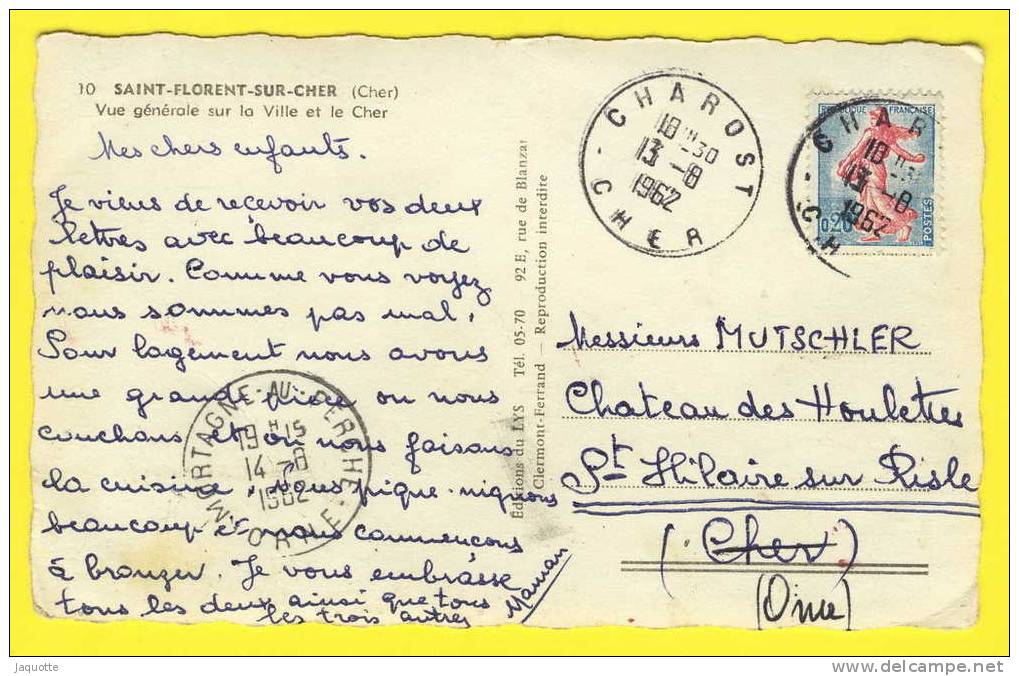 10 SAINT-FLORENT-SUR-CHER (Cher)
Vue générale sur la Ville et le Cher
Mes chers enfants.
Je viens de recevoir vos deux
lettres avec beaucoup de
plaisir. Comme vous voyez
nous sommes pas mal,
Pour logement nous avons
une grande pièce ou nous
couchons et ou nous faisons
la cuisine, nous pique-nignons
beaucoup et nous commençons
à bronzer. Je vous embrasse
tous les deux ainsi que tous
les trois autres
Maman
Éditions du LYS Tél. 05-70 92 E, rue de Blanzat
Clermont-Ferrand — Reproduction interdite
CHAROST
18 H 30
13 - 8
1962
CHER
REPUBLIQUE FRANÇAISE
0,20
POSTES
CHAR
18 H 3
13 - 8
1962
CH
Messieurs MUTSCHLER
Chateau des Houlettes
St Hilaire sur Risle
(Cher)
(Orne)
MORTAGNE-AU-PERCHE
19 H 15
14 - 8
1962
ORNE
Jaquotte
http://www.delcampe.net